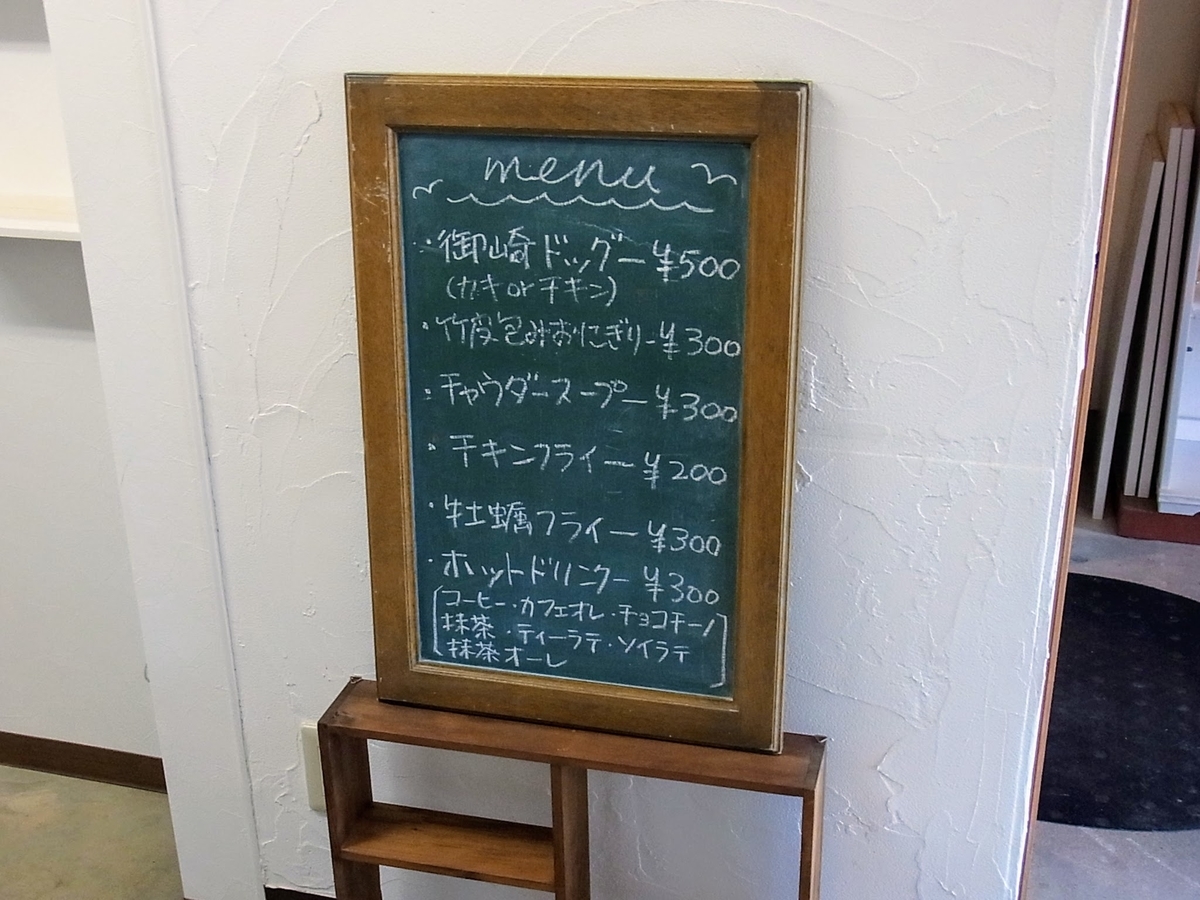 menu
・御崎ドッグー¥500
(カキorチキン)
・竹皮包みおにぎり-¥300
・チャウダースープー¥300
・チキンフライー¥200
・牡蠣フライー¥300
・ホットドリンクー¥300
コーヒー・カフェオレ・チョコチーノ
抹茶・ティーラテ・ソイラテ
抹茶オーレ